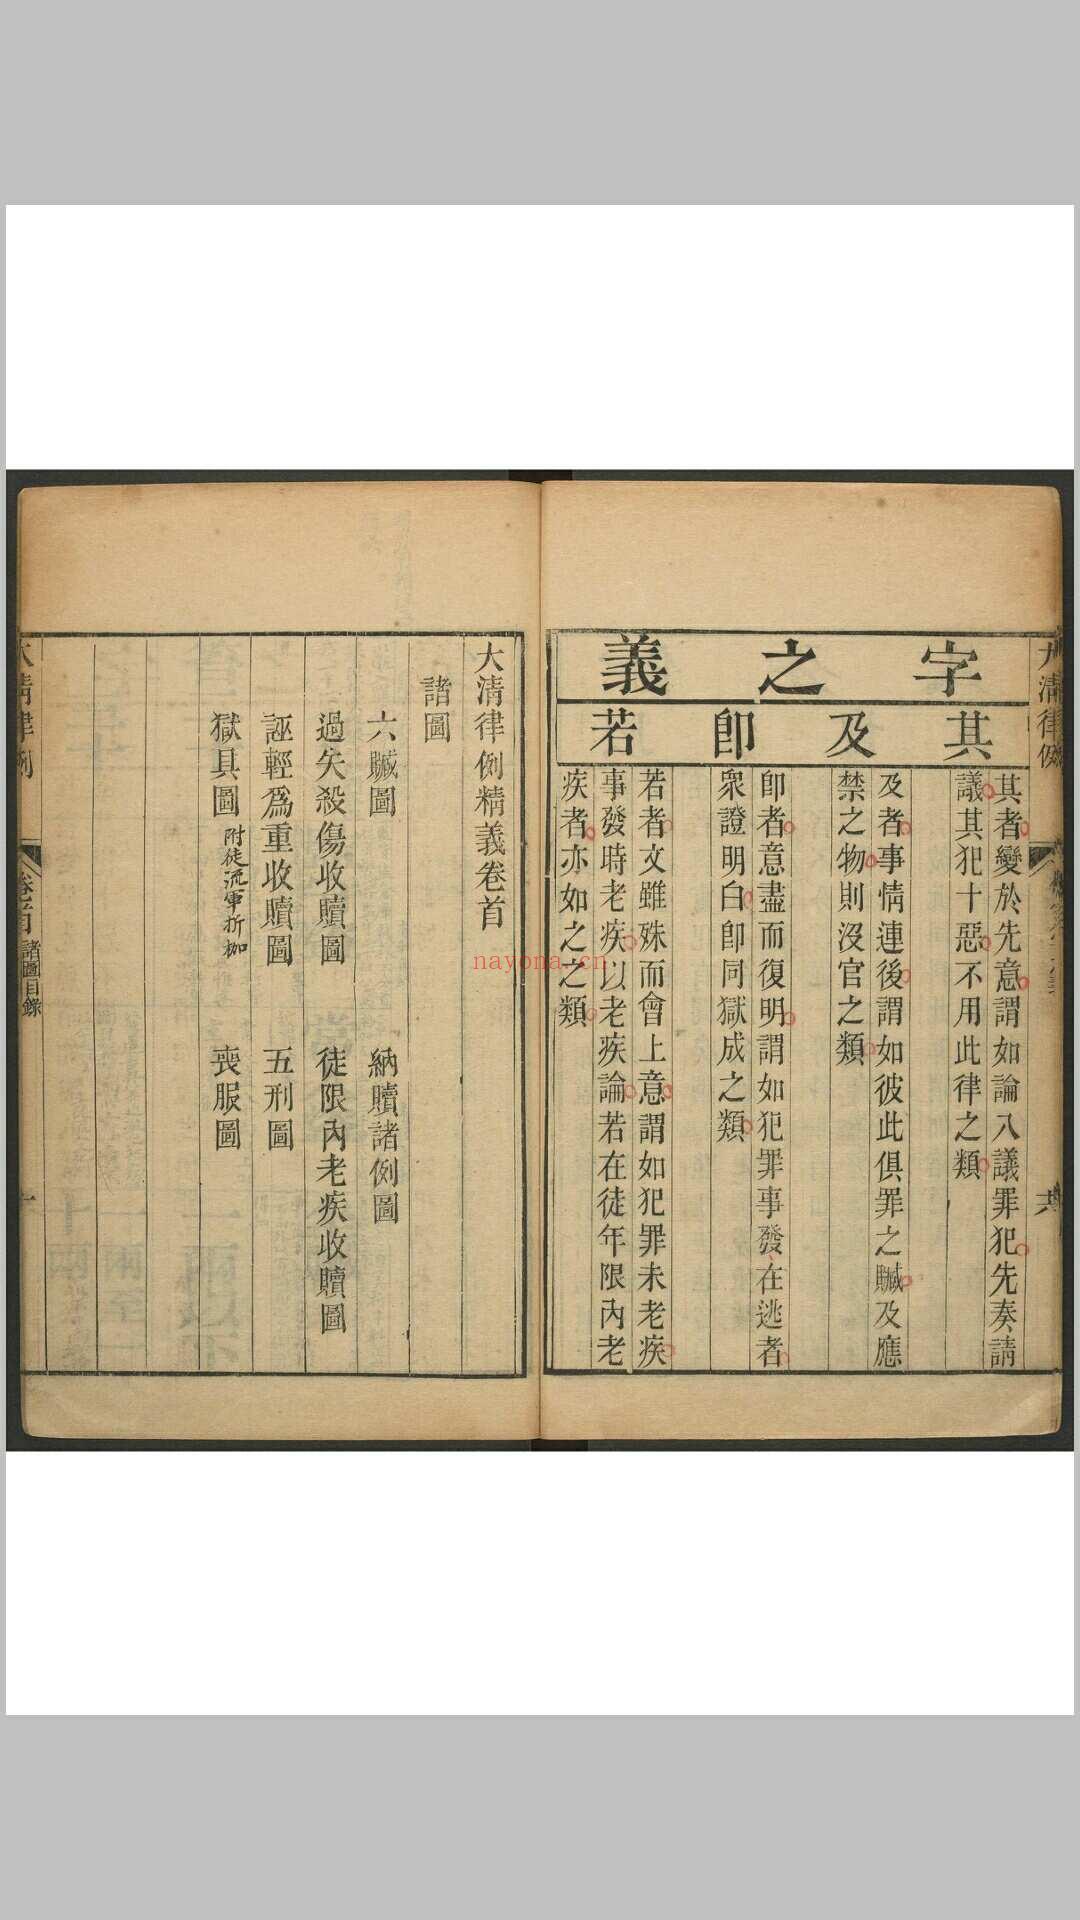 大清律例
六
字之義
其及卽若
其者變於先意謂如論八議罪犯先奏請
議其犯十惡不用此律之類
及者事情連後謂如彼此俱罪之贓及應
禁之物則沒官之類
卽者意盡而復明謂如犯罪事發在逃者
衆證明白卽同獄成之類
若者文雖殊而會上意謂如犯罪未老疾
事發時老疾以老疾論若在徒年限內老
疾者亦如之之類
大清律例精義卷首
諸圖
六贓圖 納贖諸例圖
過失殺傷收贖圖 徒限內老疾收贖圖
誣輕爲重收贖圖 五刑圖
獄具圖 附徒流軍折枷 喪服圖
大清律例
卷首 諸圖目錄
nayona.cn